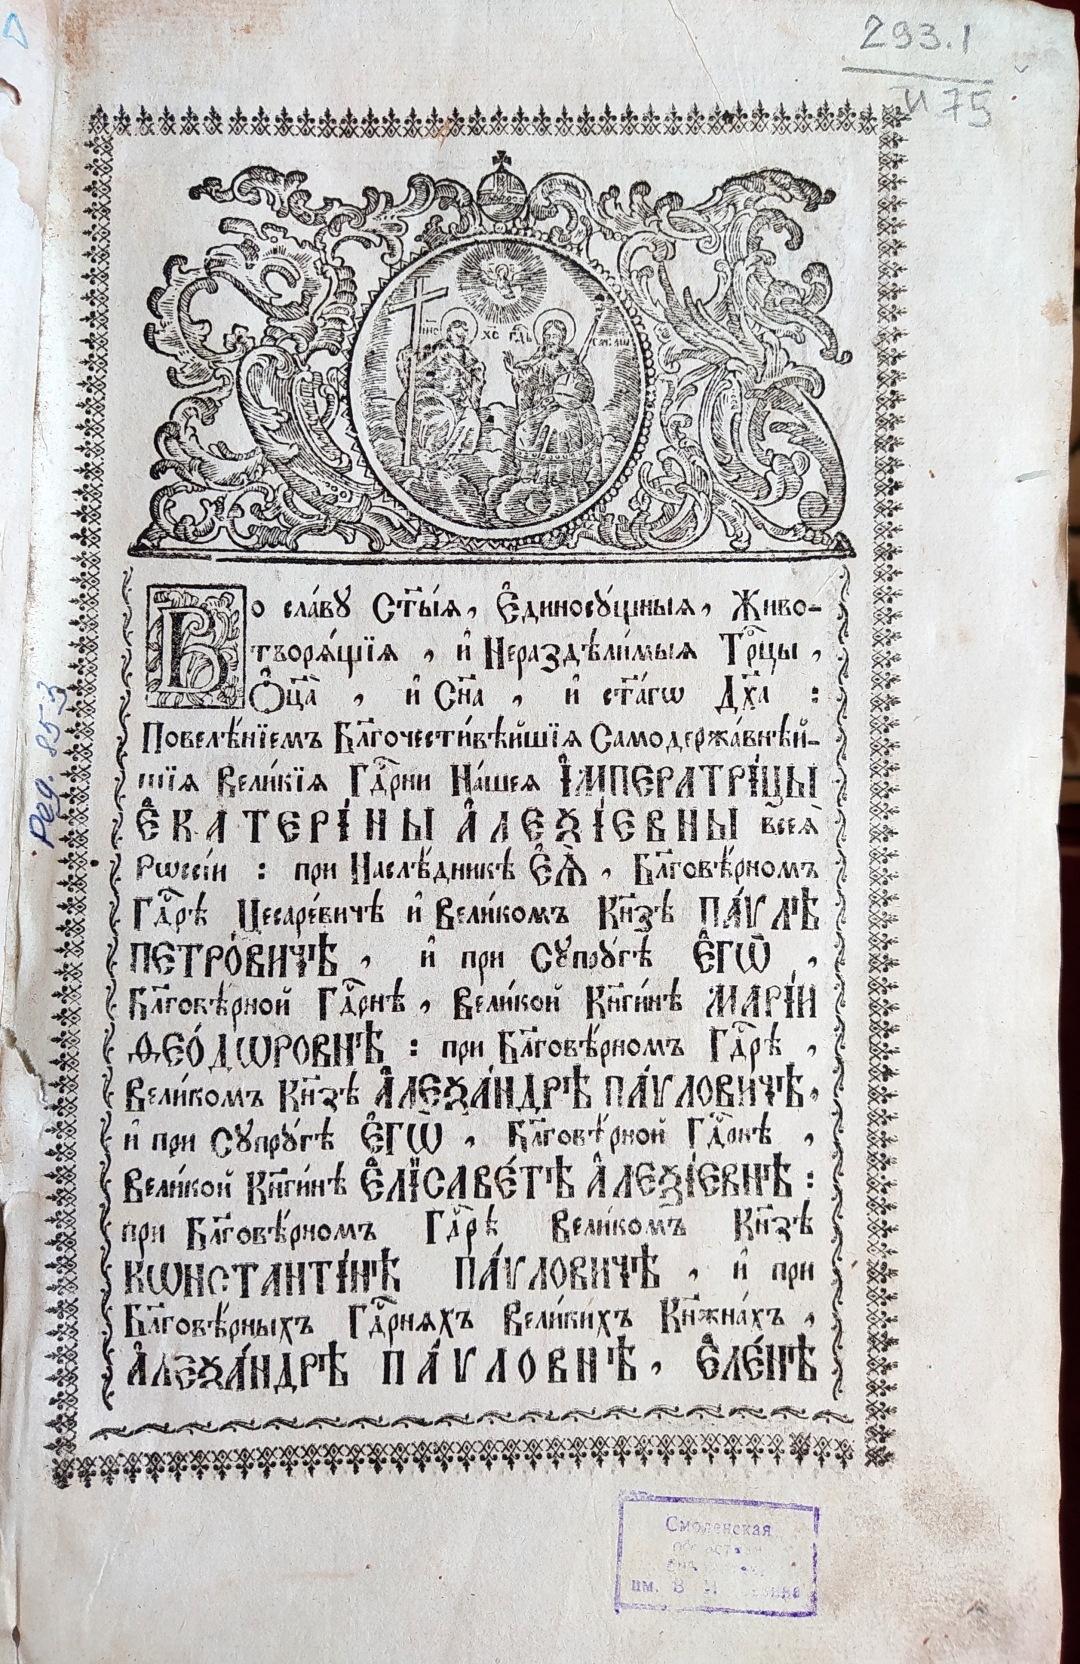 293.1
И 75
І҃ИС ХС
Во сла́ву Ст҃ы́ѧ, Е҆диносꙋ́щныѧ, Живо-
творѧ́щїѧ, и҆ Нераздѣли́мыѧ Трⷪ҇цы,
Ѻ҆ц҃а̀, и҆ Сн҃а, и҆ ст҃а́гѡ Дх҃а:
Повелѣ́нїемъ Бл҃гочести́вѣйшїѧ Самодержа́внѣй-
шїѧ Вели́кїѧ Гдⷭ҇рни На́шеѧ І҆МПЕРАТРІ́ЦЫ
Е҆КАТЕРІ́НЫ А҆ЛЕѮІ́ЕВНЫ всеѧ̀
Рѡссі́и: при Наслѣ́дникѣ Е҆Ѧ̀, Бл҃говѣ́рномъ
Гдⷭ҇рѣ Цесаре́вичѣ и҆ Вели́комъ Кн҃зѣ ПА́ѴЛѢ
ПЕТРО́ВИЧѢ, и҆ при Сꙋпрꙋ́гѣ Е҆ГѠ̀,
Бл҃говѣ́рной Гдⷭ҇рнѣ, Вели́кой Кн҃ги́нѣ МАРІ́И
ѲЕО́ДѠРОВНѢ: при Бл҃говѣ́рномъ Гдⷭ҇рѣ,
Вели́комъ Кн҃зѣ А҆ЛЕѮА́НДРѢ ПА́ѴЛОВИЧѢ,
и҆ при Сꙋпрꙋ́гѣ Е҆ГѠ̀, Бл҃говѣ́рной Гдⷭ҇рнѣ,
Вели́кой Кн҃ги́нѣ Е҆ЛІСАВЕ́ТѢ А҆ЛЕѮІ́ЕВНѢ:
при Бл҃говѣ́рномъ Гдⷭ҇рѣ Вели́комъ Кн҃зѣ
КѠНСТАНТІ́НѢ ПА́ѴЛОВИЧѢ, и҆ при
Бл҃говѣ́рныхъ Гдⷭ҇рнѧхъ Вели́кихъ Кн҃жна́хъ,
А҆ЛЕѮА́НДРѢ ПА́ѴЛОВНѢ, Е҆ЛЕ́НѢ
Ред. 853
Смоленская
им. В